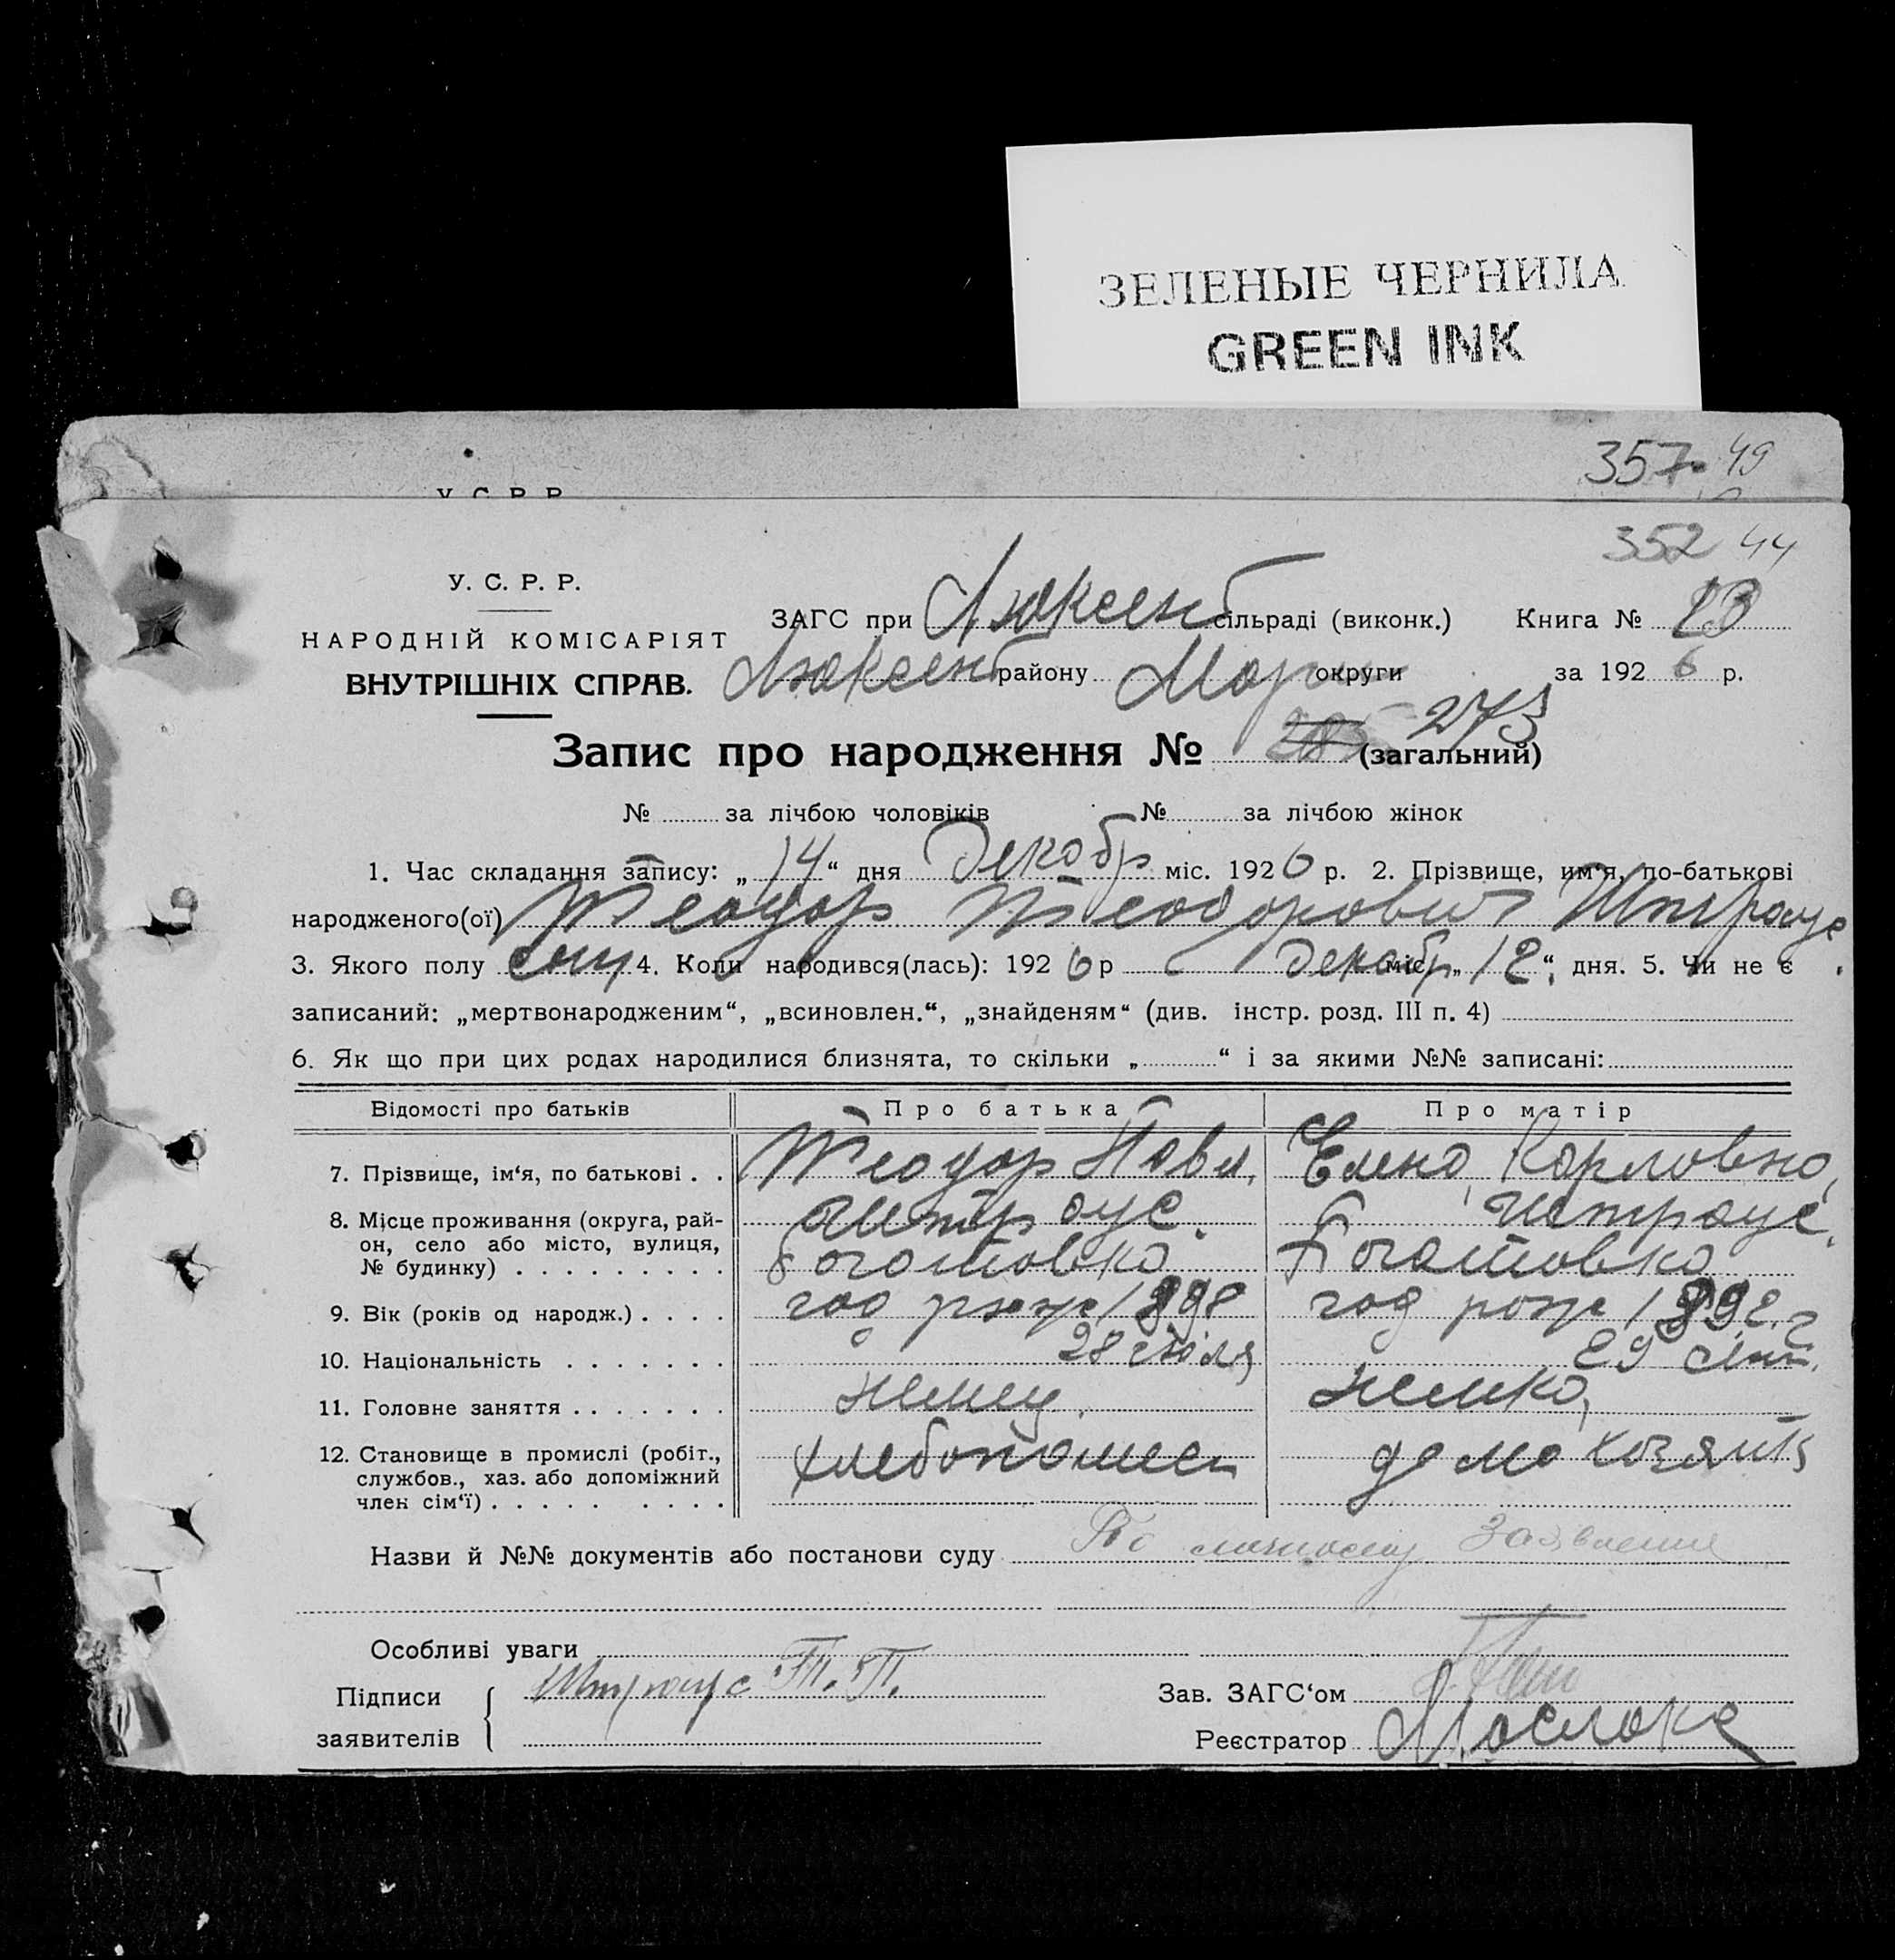 ЗЕЛЕНЫЕ ЧЕРНИЛА
GREEN INK
357 49
У. С. Р. Р.
352 44
У. С. Р. Р.
НАРОДНІЙ КОМІСАРІЯТ
ВНУТРІШНІХ СПРАВ.
ЗАГС при Люксенб сільраді (виконк.) Книга №
Люксенб району Мари округи за 1926 р.
Запис про народження № 273 (загальний)
№ за лічбою чоловіків № за лічбою жінок
1. Час складання запису: „14“ дня Декабр міс. 1926 р. 2. Прізвище, им‘я, по-батькові
народженого(ої) Теодор Теодорович Штраус
3. Якого полу 4. Коли народився(лась): 1926 р Декабр міс. „12“ дня. 5. Чи не є
записаний: „мертвонародженим“, „всиновлен.“, „знайденям“ (див. інстр. розд. III п. 4)
6. Як що при цих родах народилися близнята, то скільки „ “ і за якими №№ записані:
Відомості про батьків Про батька Про матір
7. Прізвище, ім‘я, по батькові Теодор Павл. Штраус. Елена Карловна Штраус.
8. Місце проживання (округа, рай-
он, село або місто, вулиця,
№ будинку) Богатовка Богатовка
9. Вік (років од народж.) год рожд 1898 28 Июля год рож 1892 г 29 Сент.
10. Національність немец. немка
11. Головне заняття хлебопашец домохозяйк
12. Становище в промислі (робіт.,
службов., хаз. або допоміжний
член сім‘ї)
Назви й №№ документів або постанови суду По личному Заявлению
Особливі уваги
Підписи
заявителів Штраус Т. П.
Зав. ЗАГС‘ом
Реєстратор